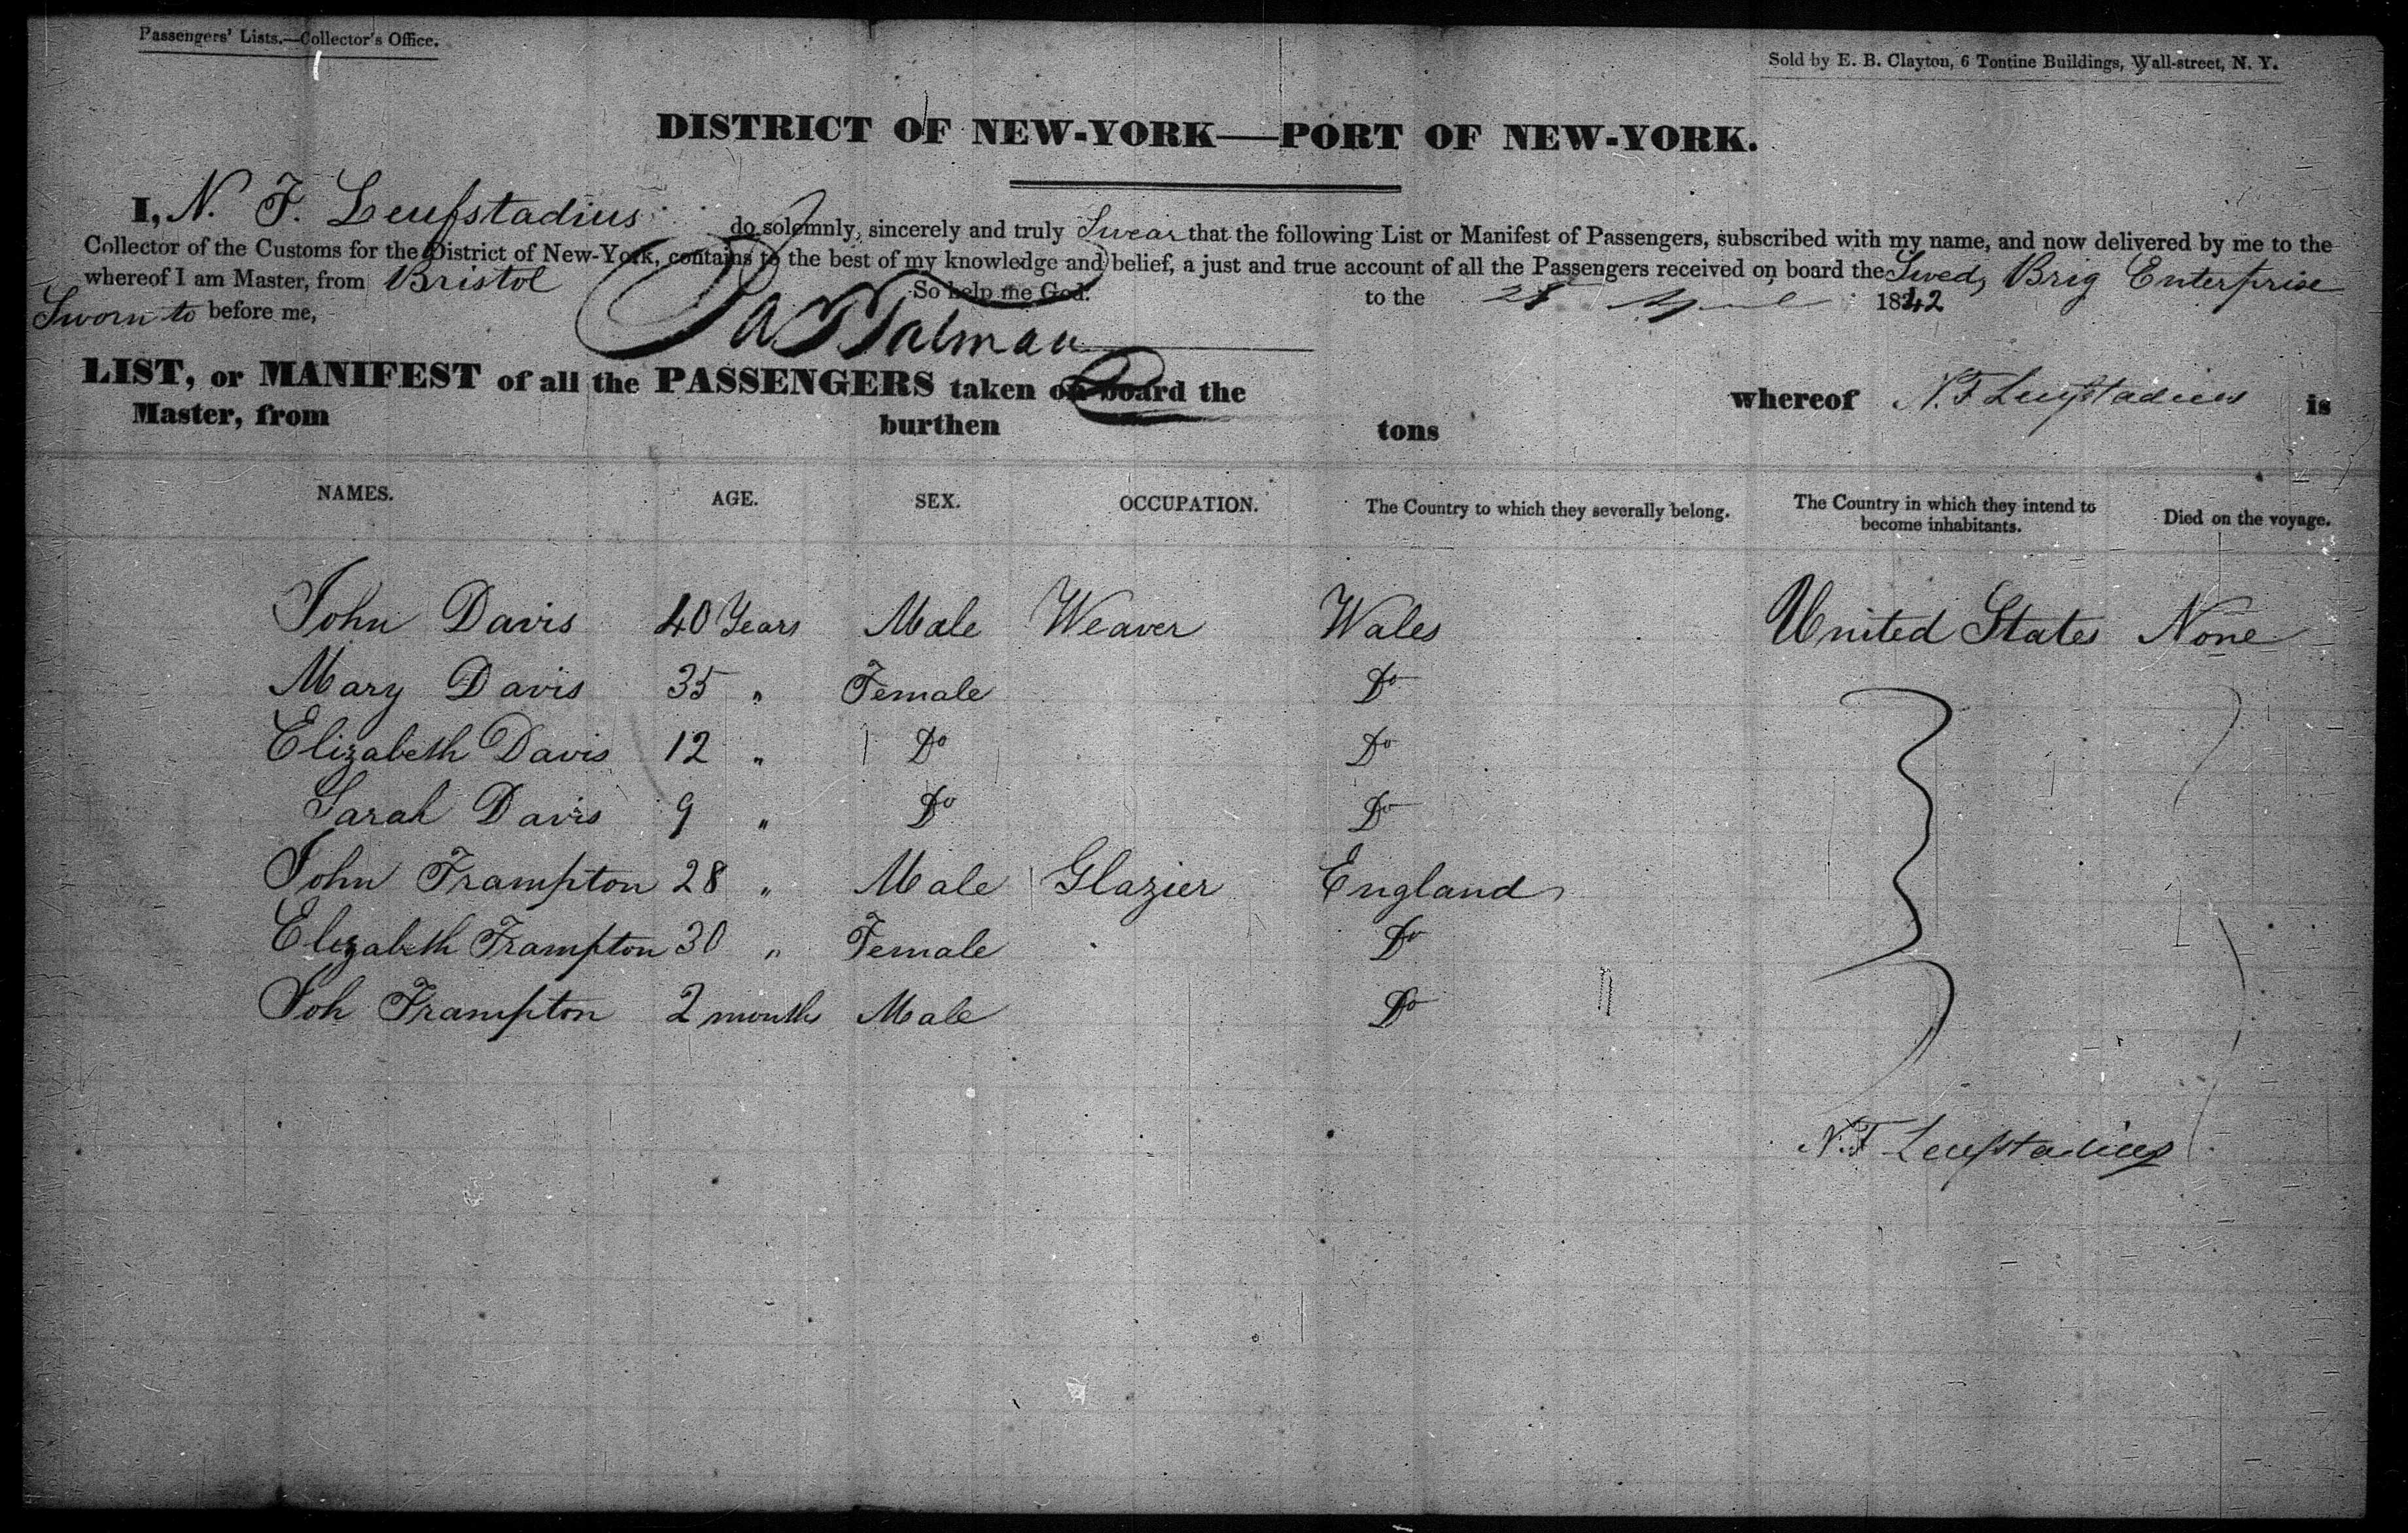 Passengers' Lists.—Collector's Office.
Sold by E. B. Clayton, 6 Tontine Buildings, Wall-street, N. Y.
DISTRICT OF NEW-YORK—PORT OF NEW-YORK.
I, N. F. Leufstadius do solemnly, sincerely and truly Swear that the following List or Manifest of Passengers, subscribed with my name, and now delivered by me to the
Collector of the Customs for the District of New-York, contains to the best of my knowledge and belief, a just and true account of all the Passengers received on board the Swed, Brig Enterprise
whereof I am Master, from Bristol So help me God.
Sworn to before me, to the 1842
Talman
LIST, or MANIFEST of all the PASSENGERS taken on board the whereof N. F Leufstadius is
Master, from burthen tons
NAMES. AGE. SEX. OCCUPATION. The Country to which they severally belong. The Country in which they intend to become inhabitants. Died on the voyage.
John Davis 40 Years Male Weaver Wales United States None
Mary Davis 35 " Female Do
Elizabeth Davis 12 " Do Do
Sarah Davis 9 " Do Do
John Frampton 28 " Male Glazier England
Elizabeth Frampton 30 " Female Do
Joh Frampton 2 months Male Do
N. F Leufstadius